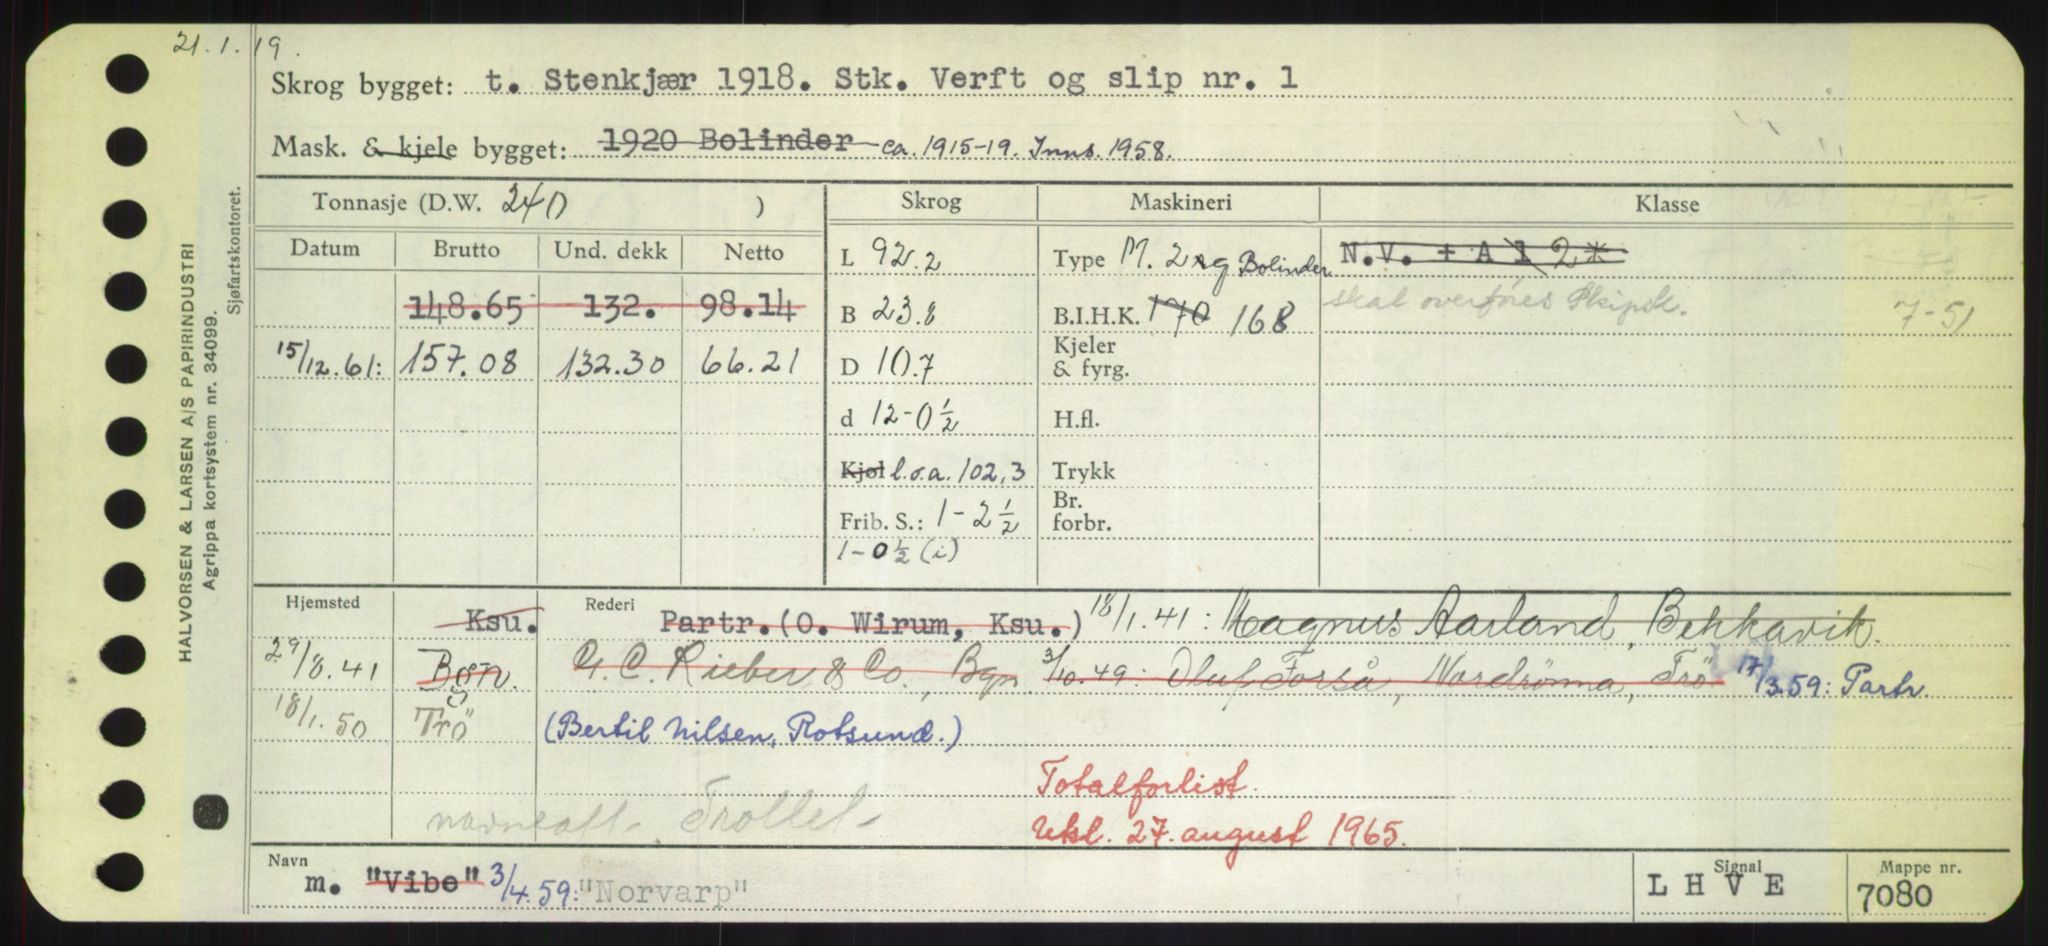 21.1.19.
Skrog bygget: t. Stenkjær 1918. Stk. Verft og slip nr. 1
Mask. & kjele bygget: 1920 Bolinder ca. 1915-19. Inns. 1958.
Tonnasje (D.W. 240 ) Skrog Maskineri Klasse
Datum Brutto Und. dekk Netto L 92.2 Type M. 2 Bolinder N.V. + A 1 2*
148.65 132. 98.14 B 23.8 B.I.H.K. 170 168 skal overføres Skipsk. 7-51
15/12.61: 157.08 132.30 66.21 D 10.7 Kjeler & fyrg.
d 12-0½ H.fl.
Kjøl l.o.a. 102,3 Trykk
Frib. S.: 1-2½ Br. forbr.
1-0½ (i)
Hjemsted Rederi
Ksu. Partr. (O. Wirum, Ksu.) 18/1.41: Magnus Aarland, Bekkavik.
29/8.41 Bgn. G. C. Rieber & Co., Bgn 3/10.49: Oluf Forså, Nordrönna, Trö 17/3.59: Partr.
18/1.50 Trö (Bertil Nilsen, Rotsund.)
Totalforlist.
navneatt- Trollet-
Utsl. 27. august 1965.
Navn m. "Vibe" 3/4.59: "Norvarp" Signal L H V E Mappe nr. 7080
HALVORSEN & LARSEN A/S PAPIRINDUSTRI
Agrippa kortsystem nr. 34099.
Sjøfartskontoret.